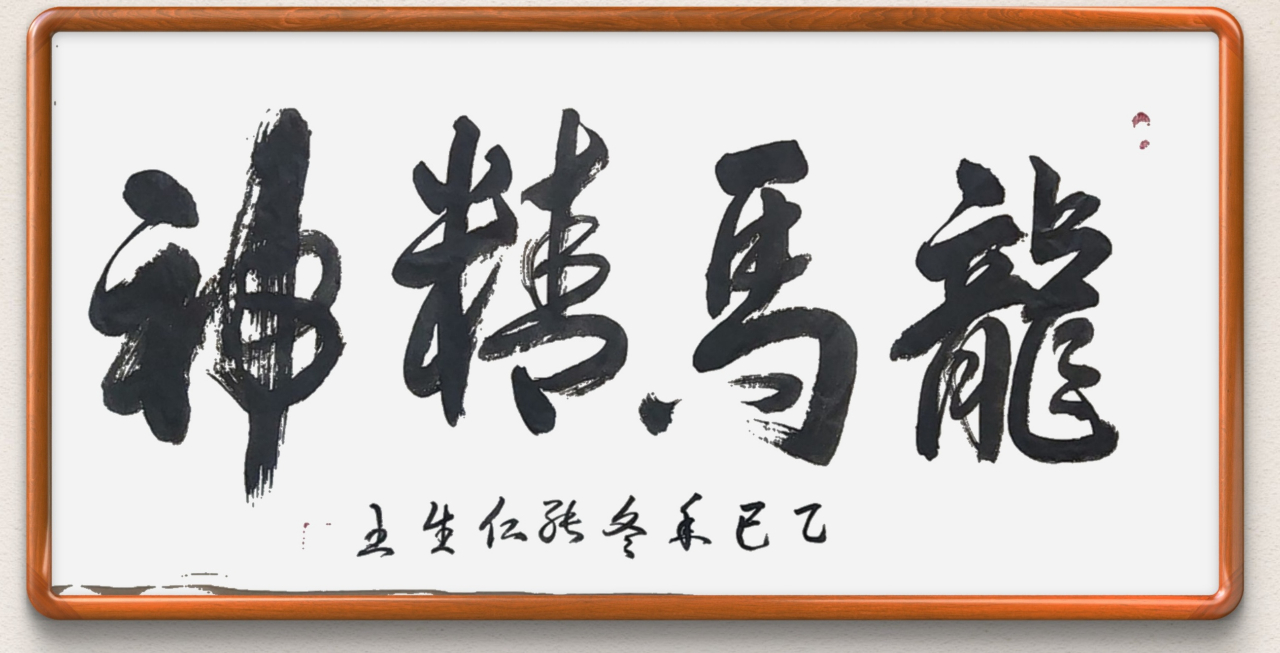 龍馬精神
乙巳季冬張仁生